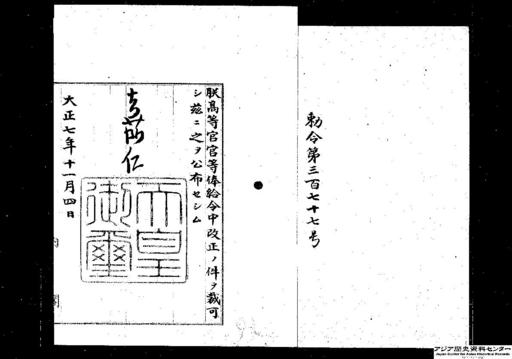 勅令第三百七十七号
朕高等官官等俸給令中改正ノ件ヲ裁可
シ茲ニ之ヲ公布セシム
嘉仁
天皇
御璽
大正七年十一月四日
内閣
アジア歴史資料センター
Japan Center for Asian Historical Records